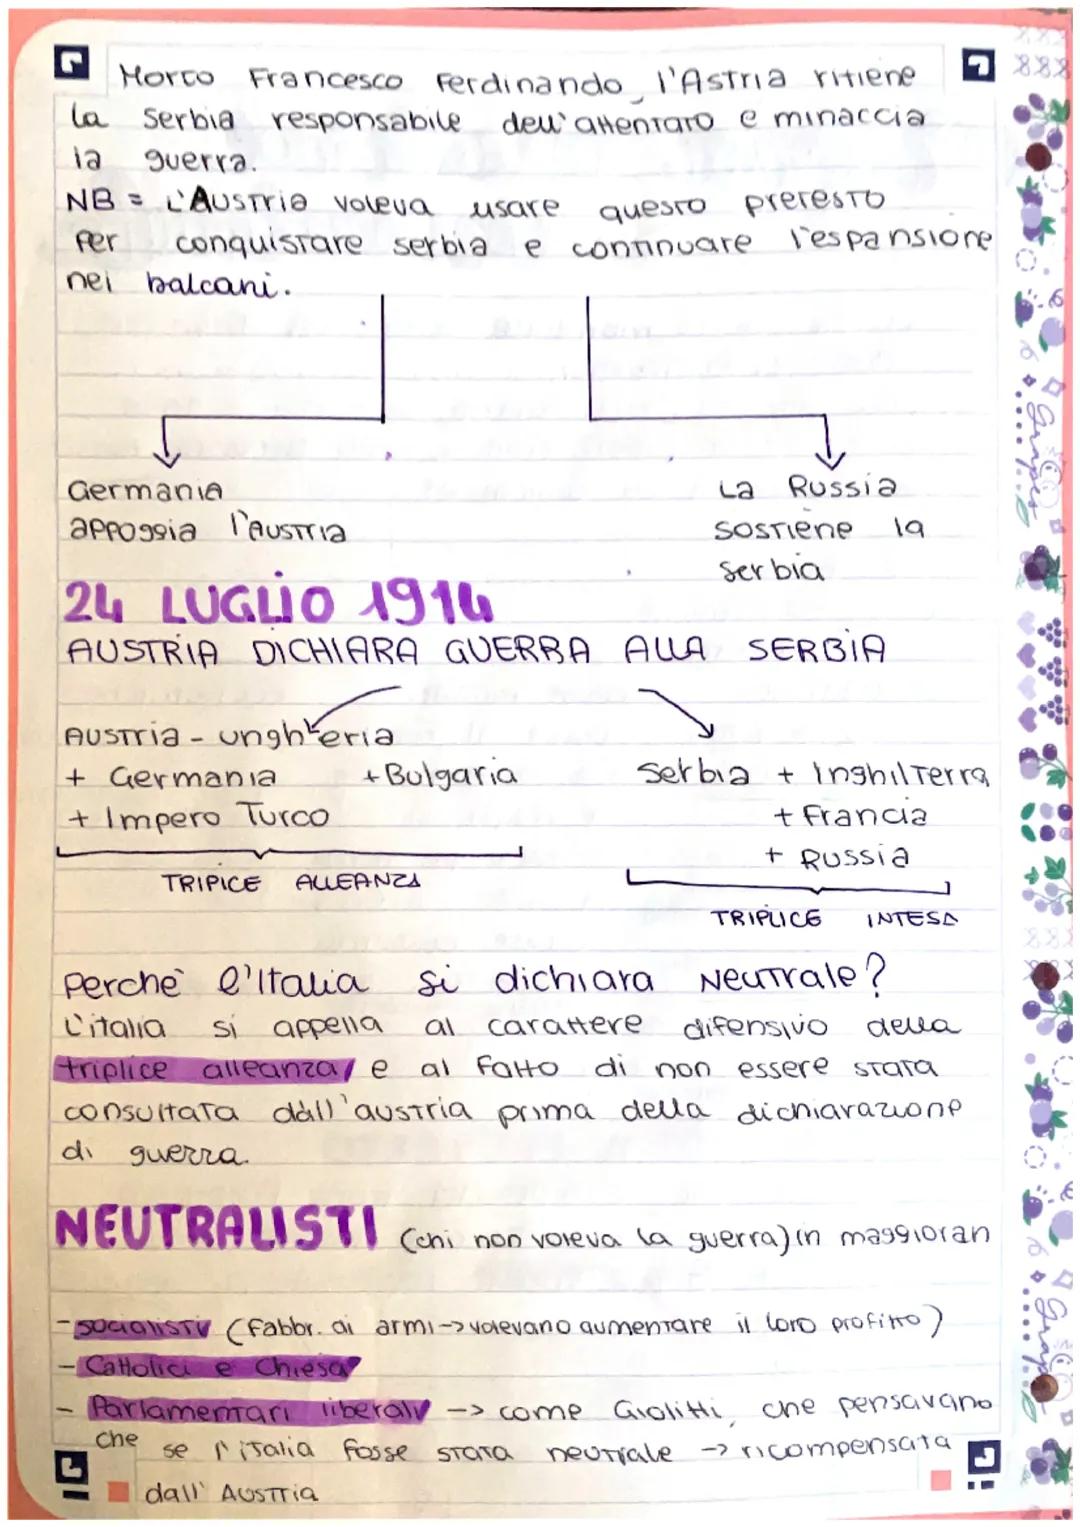 Morto Francesco Ferdinando, l'Astria ritiene
la Serbia responsabile dell'attentato e minaccia
la guerra.
NB = L'Austria voleva usare questo pretesto
per conquistare serbia e continuare l'espansione
nei balcani.
Germania
appoggia l'Austria
La Russia
sostiene la
serbia
24 LUGLIO 1914
AUSTRIA DICHIARA GUERRA ALLA SERBIA
Austria - ungheria
+ Germania + Bulgaria
+ Impero Turco
TRIPICE ALLEANZA
Serbia + Inghilterra
+ Francia
+ Russia
TRIPLICE INTESA
Perchè l'Italia si dichiara Neutrale?
L'italia si appella al carattere difensivo della
triplice alleanza, e al fatto di non essere stata
consultata dall'austria prima della dichiarazione
di guerra.
NEUTRALISTI (chi non voleva la guerra) in maggioran
- socialisti (fabbr. di armi -> volevano aumentare il loro profitto)
- Cattolici e Chiesa
- Parlamentari liberali -> come Giolitti, che pensavano
che se l'italia fosse stata neutrale -> ricompensata
dall' Austria
Grapes